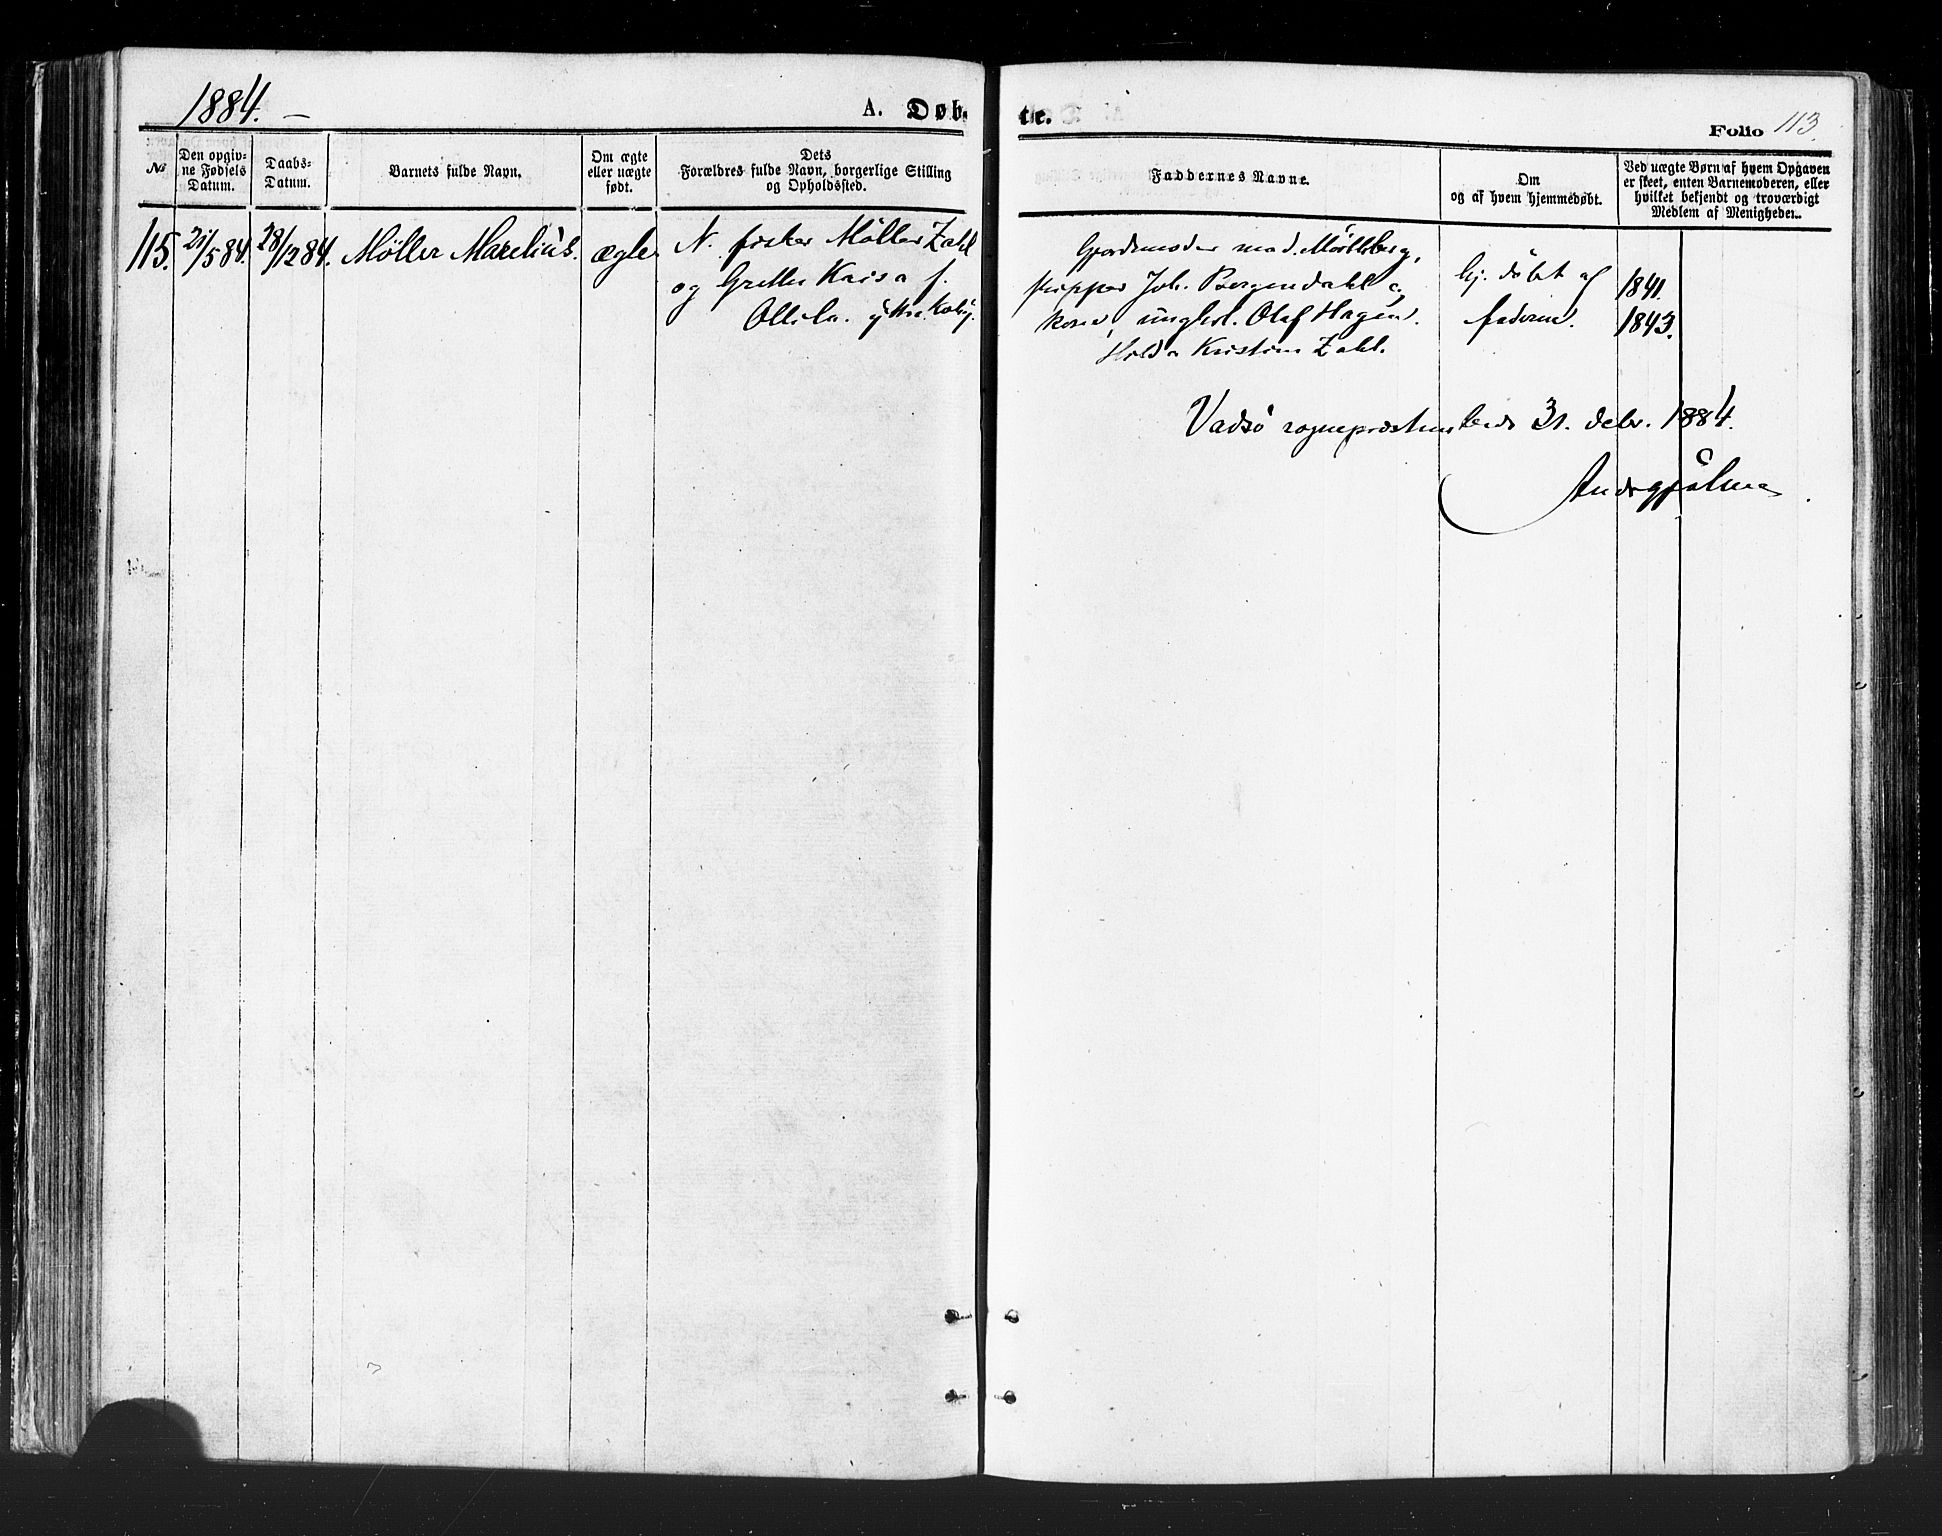 1884. –
A. Døb-
te.
Folio 113
No
Den opgiv-
ne Fødsels
Datum.
Daabs-
Datum.
Barnets fulde Navn.
Om ægte
eller uægte
født.
Dets
Forældres fulde Navn, borgerlige Stilling
og Opholdssted.
Faddernes Navne.
Om
og af hvem hjemmedøbt.
Ved uægte Børn af hvem Opgaven
er skeet, enten Barnemoderen, eller
hvilket bekjendt og troværdigt
Medlem af Menigheden.
115. 21/5 84. 28/12 84. Møller Marelius. ægte
N. fisker Møller Zahl
og Grethe Kaisa f.
Ollila. ytre Køby.
Gjordemoder mad.
skipper Joh. Bergendahl og
kone, ungkrl. Olaf Hagen.
Hilda Kristine Zahl.
hj. døbt af
faderen.
1841.
1843.
Vadsö sogneprestembede 31. debr. 1884.